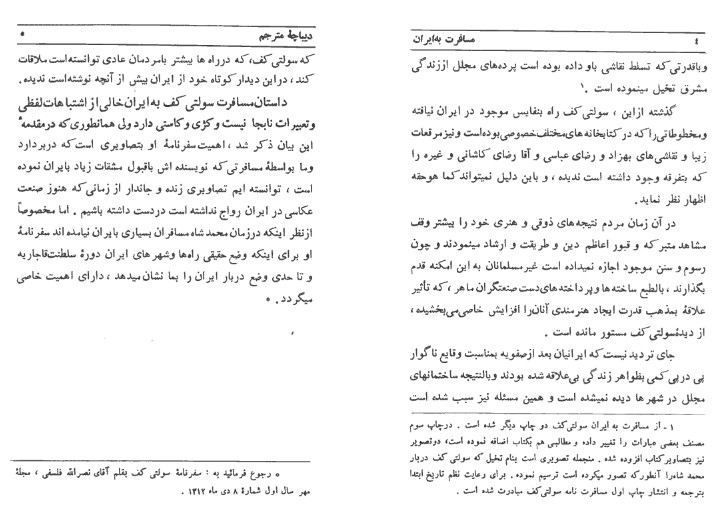 ٤ مسافرت به ایران
وباقدرتی که تسلط نقاشی باو داده بوده است پرده‌های مجلل اززندگی
مشرق تخیل مینموده است .۱
گذشته ازاین ، سولتی‌کف راه بنفایس موجود در ایران نیافته
ومخطوطاتی را که در کتابخانه‌های مختلف خصوصی بوده است و نیز مرقعات
زیبا و نقاشی‌های بهزاد و رضای عباسی و آقا رضای کاشانی و غیره را
که بتفرقه وجود داشته است ندیده ، و باین دلیل نمیتواند کما هوحقه
اظهار نظر نماید.
در آن زمان مردم نتیجه‌های ذوقی و هنری خود را بیشتر وقف
مشاهد متبرکه و قبور اعاظم دین و طریقت و ارشاد مینمودند و چون
رسوم و سنن موجود اجازه نمیداده است غیرمسلمانان به این امکنه قدم
بگذارند ، بالطبع ساخته‌ها و پرداخته‌های دست صنعتگران ماهر ، که تأثیر
علاقهٔ بمذهب قدرت ایجاد هنرمندی آنان را افزایش خاصی می‌بخشیده ،
از دیدهٔ سولتی کف مستور مانده است .
جای تردید نیست که ایرانیان بعد ازصفویه بمناسبت وقایع ناگوار
پی درپی کمی بظواهر زندگی بی‌علاقه شده بودند و بالنتیجه ساختمانهای
مجلل در شهرها دیده نمیشده است و همین مسئله نیز سبب شده است
۱ـ از مسافرت به ایران سولتی‌کف دو چاپ دیگر شده است . درچاپ سوم
مصنف بعضی عبارات را تغییر داده و مطالبی هم بکتاب اضافه نموده است، دوتصویر
نیز بتصاویرکتاب افزوده شده . منجمله تصویری است بنام تخیل که سولتی کف دربار
محمد شاه را آنطورکه تصور میکرده است ترسیم نموده . برای رعایت نظم تاریخ ابتدا
بترجمه و انتشار چاپ اول مسافرت نامه سولتی‌کف مبادرت شده است .
دیباچهٔ مترجم ٥
که سولتی کف، که درراه ها بیشتر بامردمان عادی توانسته است ملاقات
کند ، دراین دیدار کوتاه خود از ایران بیش از آنچه نوشته است ندیده.
داستان مسافرت سولتی کف به ایران خالی از اشتباهات لفظی
و تعبیرات نابجا نیست و کژی و کاستی دارد ولی همانطوری که در مقدمهٔ
این بیان ذکر شد ، اهمیت سفرنامهٔ او بتصاویری است که دربردارد
وما بواسطهٔ مسافرتی که نویسنده اش باقبول مشقات زیاد بایران نموده
است ، توانسته ایم تصاویری زنده و جاندار از زمانی که هنوز صنعت
عکاسی در ایران رواج نداشته است دردست داشته باشیم . اما مخصوصاً
ازنظر اینکه درزمان محمد شاه مسافران بسیاری بایران نیامده اند سفرنامهٔ
او برای اینکه وضع حقیقی راه‌ها وشهرهای ایران دورهٔ سلطنت قاجاریه
و تا حدی وضع دربار ایران را بما نشان میدهد ، دارای اهمیت خاصی
میگردد . *
* رجوع فرمائید به : سفرنامهٔ سولتی کف بقلم آقای نصرالله فلسفی ، مجلهٔ
مهر سال اول شمارهٔ ۸ دی ماه ۱۳۱۲ .